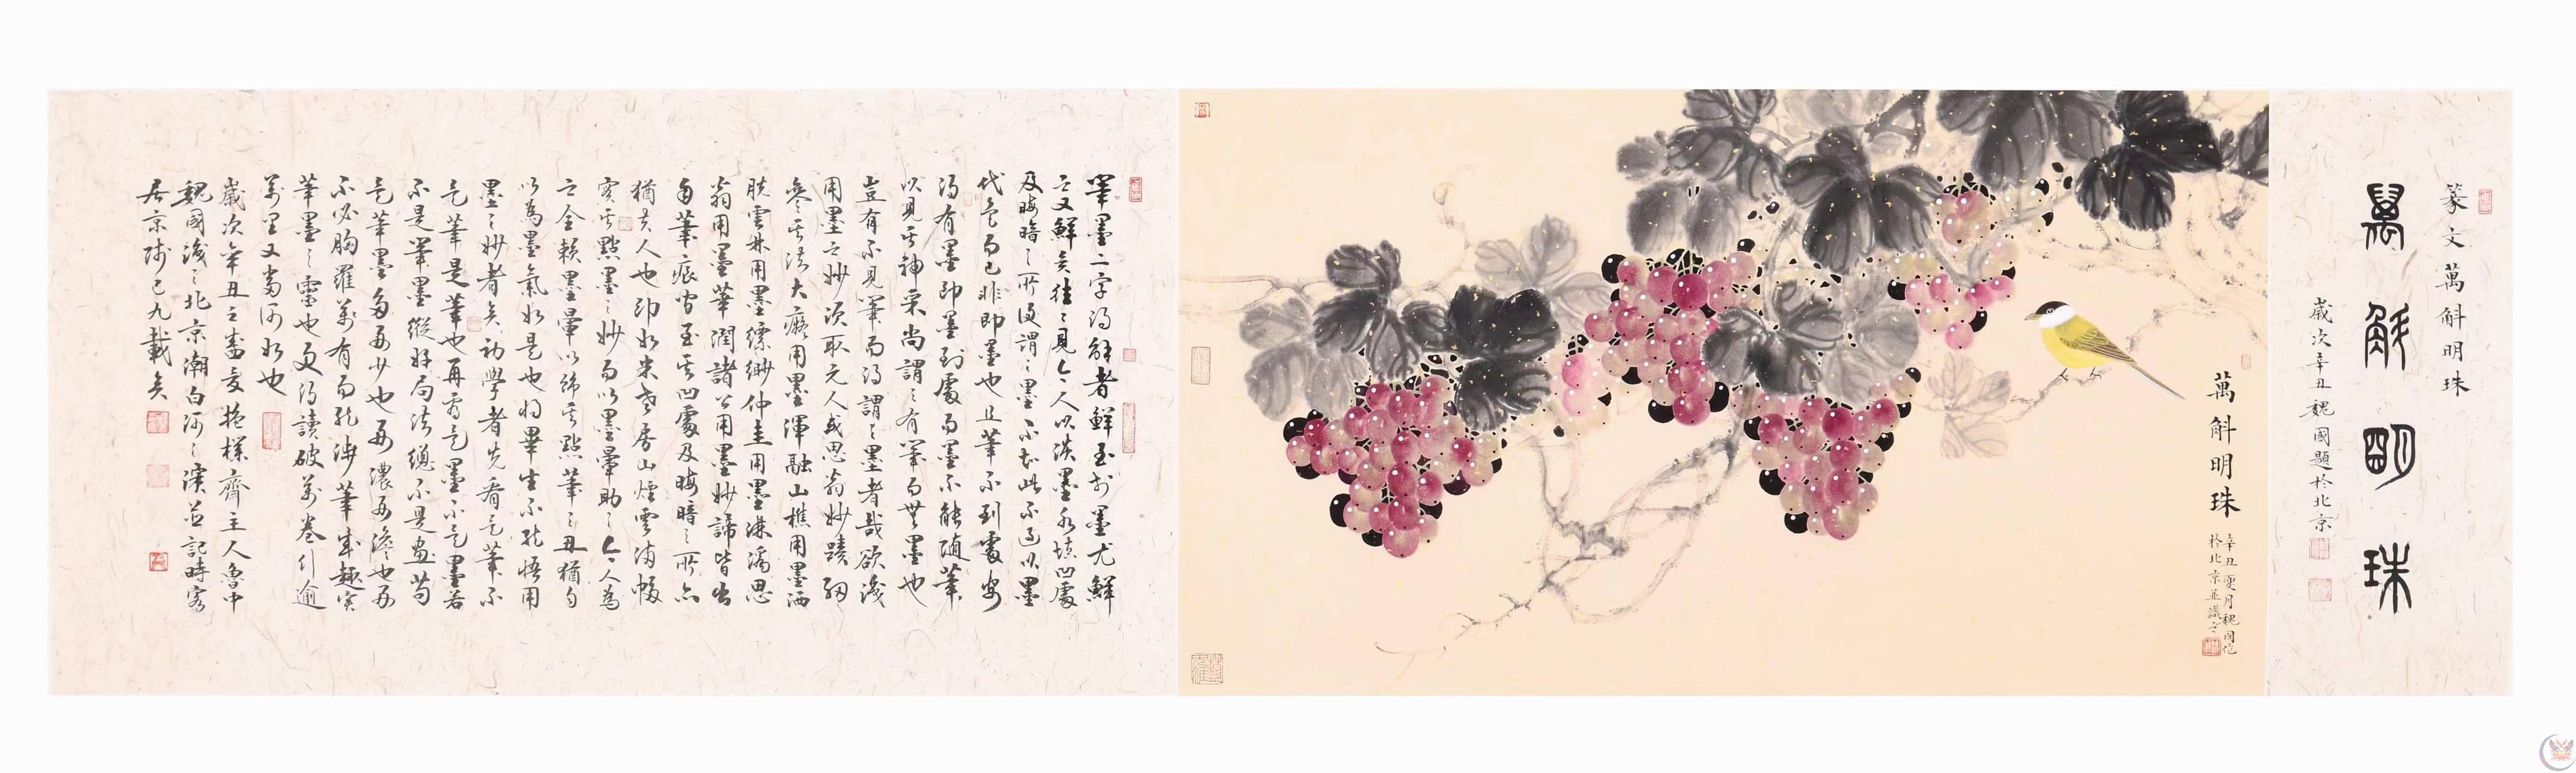 篆文萬斛明珠
萬斛明珠
歲次辛丑魏國題於北京
萬斛明珠
辛丑夏月魏國作
於北京並識之
筆墨二字得解者鮮至於墨尤鮮
之又鮮矣往往見今人以淡墨水填凹處
及晦暗之所便謂之墨不知此不過以墨
代色而已非即墨也且筆不到處安
得有墨即墨到處而墨不能隨筆
以見其神采尚謂之有筆而無墨也
豈有不見筆而得謂之墨者哉欲識
用墨之妙須取元人或思翁妙蹟細
參其法大癡用墨渾融山樵用墨洒
脫雲林用墨縹緲仲圭用墨淋漓思
翁用墨華潤諸公用墨妙諦皆出
自筆痕間至其凹處及晦暗之所亦
猶夫人也即如米老房山煙雲滿幅
實其點墨之妙而以墨暈助之今人為
之全賴墨暈以飾其點筆之丑猶自
以為墨氣如是也將畢生不能悟用
墨之妙者矣初學者先看是筆不
是筆是筆也再看是墨不是墨若
不是筆墨縱好局法總不是畫苟
是筆墨多亦少也亦濃亦澹也亦
不必胸羅萬有而施海筆成趣實
筆墨之靈也更得讀破萬卷引逾
萬里又當何如也
歲次辛丑之盛夏樵齋主人魯中
魏國識之北京潮白河之濱並記時客
居京師已九載矣